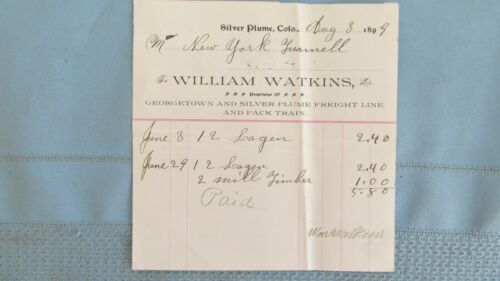 Silver Plume, Colo., Aug 8 1899
M New York Tunnell
To WILLIAM WATKINS, Dr.
Proprietor Of
GEORGETOWN AND SILVER PLUME FREIGHT LINE
AND PACK TRAIN.
June 8 12 Lagen 2.40
June 29 12 Lagen 2.40
2 mill Timber 1.00
5.80
Paid
Wm Watkins